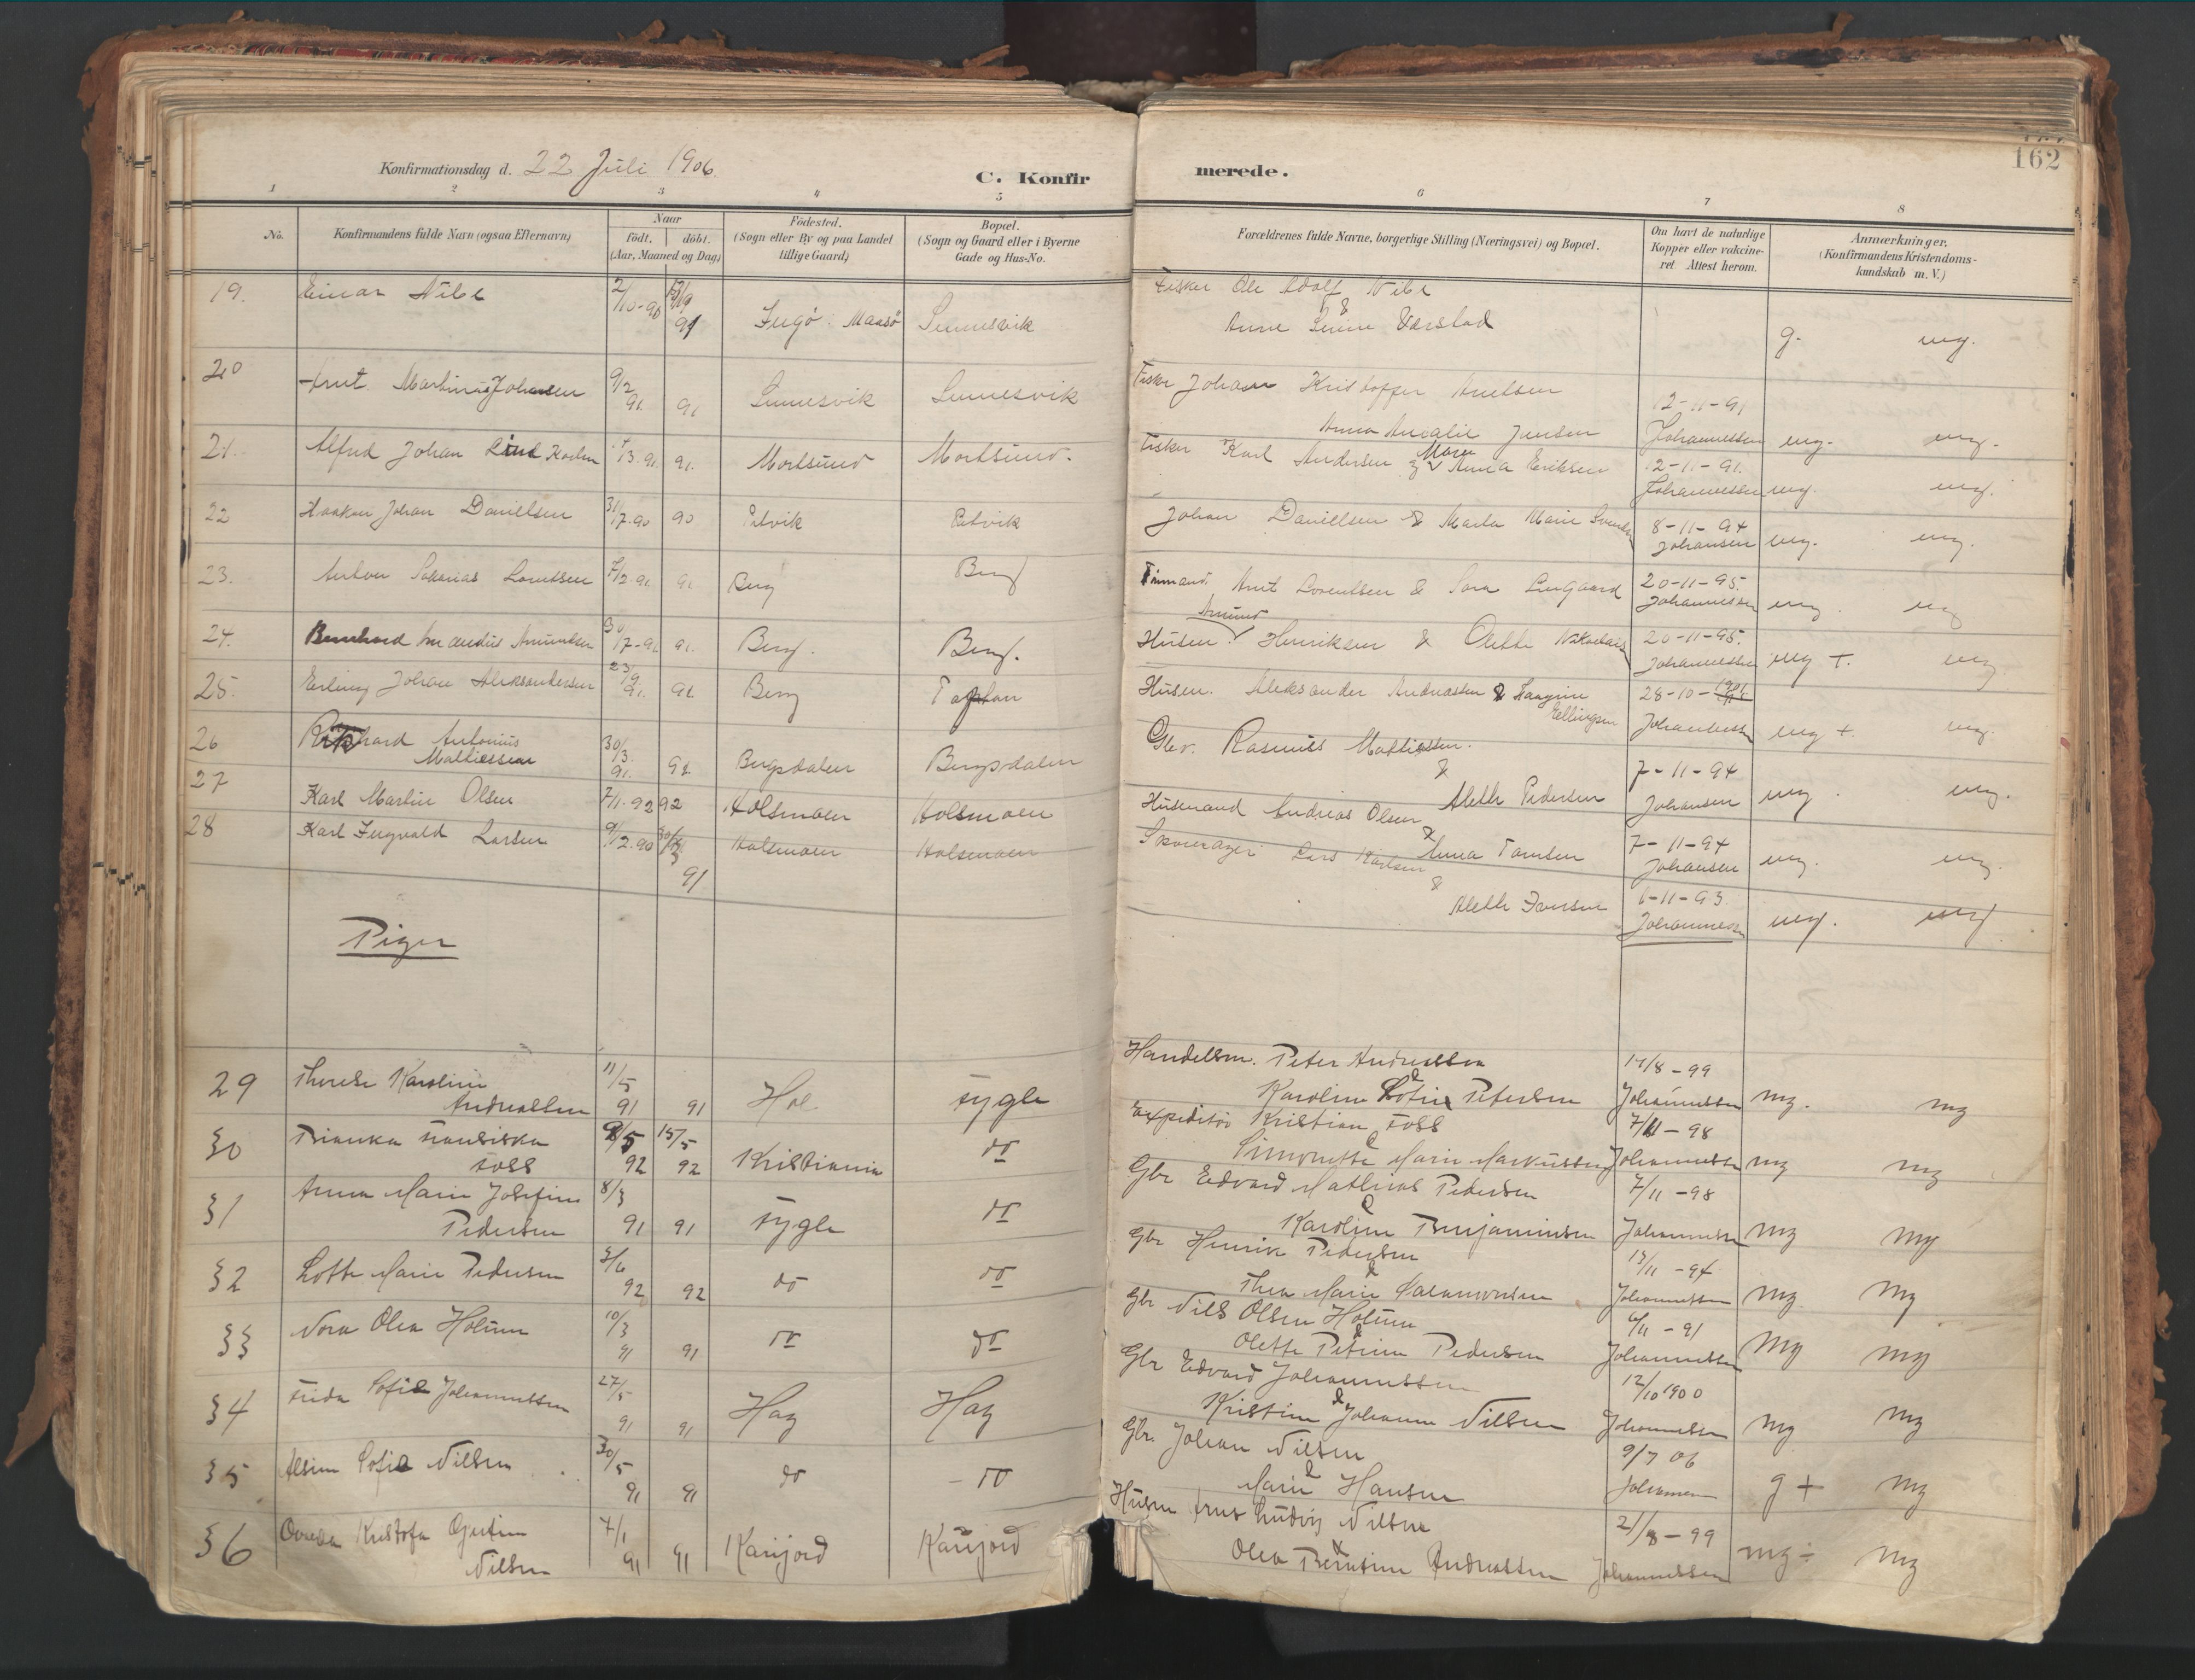 Konfirmationsdag d. 22 Juli 1906.
C. Konfir
merede.
162
1 2 3 4 5 6 7 8
No.
Konfirmandens fulde Navn (ogsaa Efternavn)
Naar
födt. döbt.
(Aar, Maaned og Dag)
Födested.
(Sogn eller By og paa Landet
tillige Gaard)
Bopæl.
(Sogn og Gaard eller i Byerne
Gade og Hus-No.
Forældrenes fulde Navne, borgerlige Stilling (Næringsvei) og Bopæl.
Om havt de naturlige
Kopper eller vakcine-
ret Attest herom.
Anmærkninger.
(Konfirmandens Kristendoms-
kundskab m. V.)
19. Einar Nibe 2/10-90 91 Ingö. Maasö Sennesvik Fisker Ole Adolf Nibe
&
Anne g. mg.
20 Arnt Martinus Johansen 9/2 91. 91 Sennesvik Sennesvik Fisker Johan Kristoffer 12-11-91
Anna Amalie Jensen Johannessen mg. mg.
21. Alfred Johan 3.91. 91. Mortsund Mortsund. Fisker Karl Andersen & Anna Eriksen 12-11-91.
Johannessen mg. mg.
22 Haakon Johan Danielsen 31/7-90 90 Petvik Petvik Johan Danielsen & Marta Marie 8-11-94
Johansen mg. mg.
23. Anton Sakarias Lorentsen 7/2.91. 91. Berg Berg Arnt Lorentsen & Sara 20-11-95.
Johannessen mg. mg
24. Bernhard Amandus Amundsen 30/7-91 91. Berg. Berg. Amund
Husm. Henriksen & Olette 20-11-95.
Johannessen mg +. mg
25. Erling Johan Aleksandersen 23/9 91. 91 Berg Husm. Aleksander Andreassen & 28-10-1901
Ellingsen Johannessen mg +. mg.
26 Antonius
Mathiessen 30/3. 91. 91 Bergsdalen Bergsdalen Gbr. Rasmus Mathiessen.
&
Aleth Pedersen 7-11-94
Johansen mg. mg.
27 Karl Martin Olsen 7/1.92 92 Holsmoen Holsmoen Husmand Andreas Olsen
&
Anna 7-11-94
Johansen mg. mg.
28 Karl Ingvald Larsen 9/2.90 91 Holsmoen Holsmoen Skomager Lars Karlsen
&
Aleth Jensen 6-11-93.
Johannessen mg. mg
Piger
29 Therese Karoline
Andreassen 11/5 91 91 Hol Sygle Handelsm. Peter Andreassen
&
Karoline Lotin Pedersen 14/8-99
Johannessen mg. mg
30 Bianka Fransiska
Foss 8/5 92 15/5 92 Kristiania do Expeditör Kristian Foss
&
Simonette Marie Markussen 7/11-98
Johannessen mg mg
31 Anna Marie Josefine
Pedersen 8/3 91 91 Sygle do Gbr Edvard Mathias Pedersen
&
Karoline Benjaminsen 7/11-98
Johannessen mg mg
32 Lotte Marie Pedersen 3/6 92 92 do do Gbr Henrik Pedersen
&
Thea Marie Salamonsen 13/11-94
Johannessen mg mg
33 Nora Olea Holum 10/3 91 91 do do Gbr Nils Olsen Holum
&
Olette Petrine Pedersen 6/11-91
Johannessen mg mg
34 Frida Sofie Johannessen 27/5 91 91 Hag Hag Gbr Edvard Johannessen
&
Kristine Johanne Nilsen 12/10 1900
Johannessen mg mg
35 Alsine Sofie Nilsen 30/5 91 91 do - do Gbr. Johan Nilsen
&
Marie Hansen 9/7 06
Johansen g + mg
36 Ovedia Kristofa Gjertine
Nilsen 4/1 91 91 Karijord Karijord Husm Arnt Ludvig Nilsen
&
Olea Berntine Andreassen 21/8-99
Johannessen mg ÷ mg